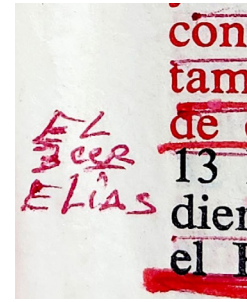 EL
3cer
ELÍAS
con
tam
de
13
dien
el